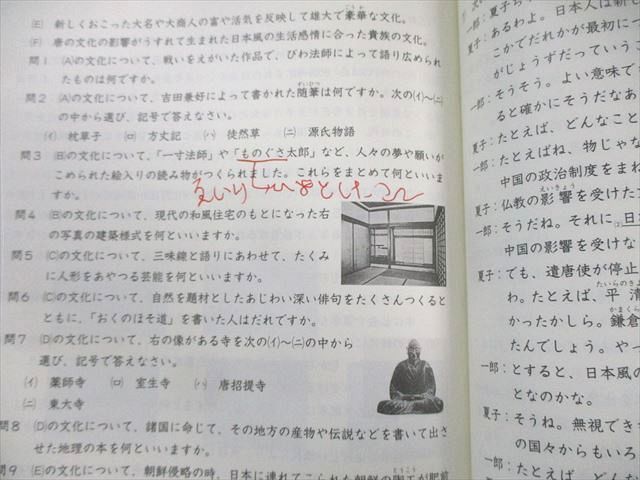 (E) 新しくおこった大名や大商人の富や活気を反映して雄大で豪華な文化。
(F) 唐の文化の影響がうすれて生まれた日本風の生活感情に合った貴族の文化。
問1 (A)の文化について、戦いをえがいた作品で、びわ法師によって語り広められ
たものは何ですか。
問2 (A)の文化について、吉田兼好によって書かれた随筆は何ですか。次の(イ)~(ニ)
の中から選び、記号で答えなさい。
(イ) 枕草子 (ロ) 方丈記 (ハ) 徒然草 (ニ) 源氏物語
問3 (B)の文化について、「一寸法師」や「ものぐさ太郎」など、人々の夢や願いが
こめられた絵入りの読み物がつくられました。これらをまとめて何といいま
すか。
問4 (B)の文化について、現代の和風住宅のもとになった右
の写真の建築様式を何といいますか。
問5 (C)の文化について、三味線と語りにあわせて、たくみ
に人形をあやつる芸能を何といいますか。
問6 (C)の文化について、自然を題材としたあじわい深い俳句をたくさんつくると
ともに、「おくのほそ道」を書いた人はだれですか。
問7 (D)の文化について、右の像がある寺を次の(イ)~(ニ)の中から
選び、記号で答えなさい。
(イ) 薬師寺 (ロ) 室生寺 (ハ) 唐招提寺
(ニ) 東大寺
問8 (D)の文化について、諸国に命じて、その地方の産物や伝説などを書いて出さ
せた地理の本を何といいますか。
問9 (E)の文化について、朝鮮侵略の時、日本に連れてこられた朝鮮の陶工が肥前
夏子:あるわよ。日本人は新し
こかでだれかが最初に一
がじょうずだっていう
一郎:そうそう。よい意味で
ると確かにそうだなあ
夏子:たとえば、どんなこと
一郎:たとえばね、物じゃな
中国の政治制度をまね
夏子:仏教の影響を受けた
一郎:そうだね。それに
中国の影響を受けな
夏子:でも、遣唐使が停止
わ。たとえば、平清
かったかしら。鎌倉
たんでしょう。やっ
一郎:とすると、日本風の
となのかな。
夏子:そうね。無視でき
の国々からもいろ
一郎:たとえば、どん